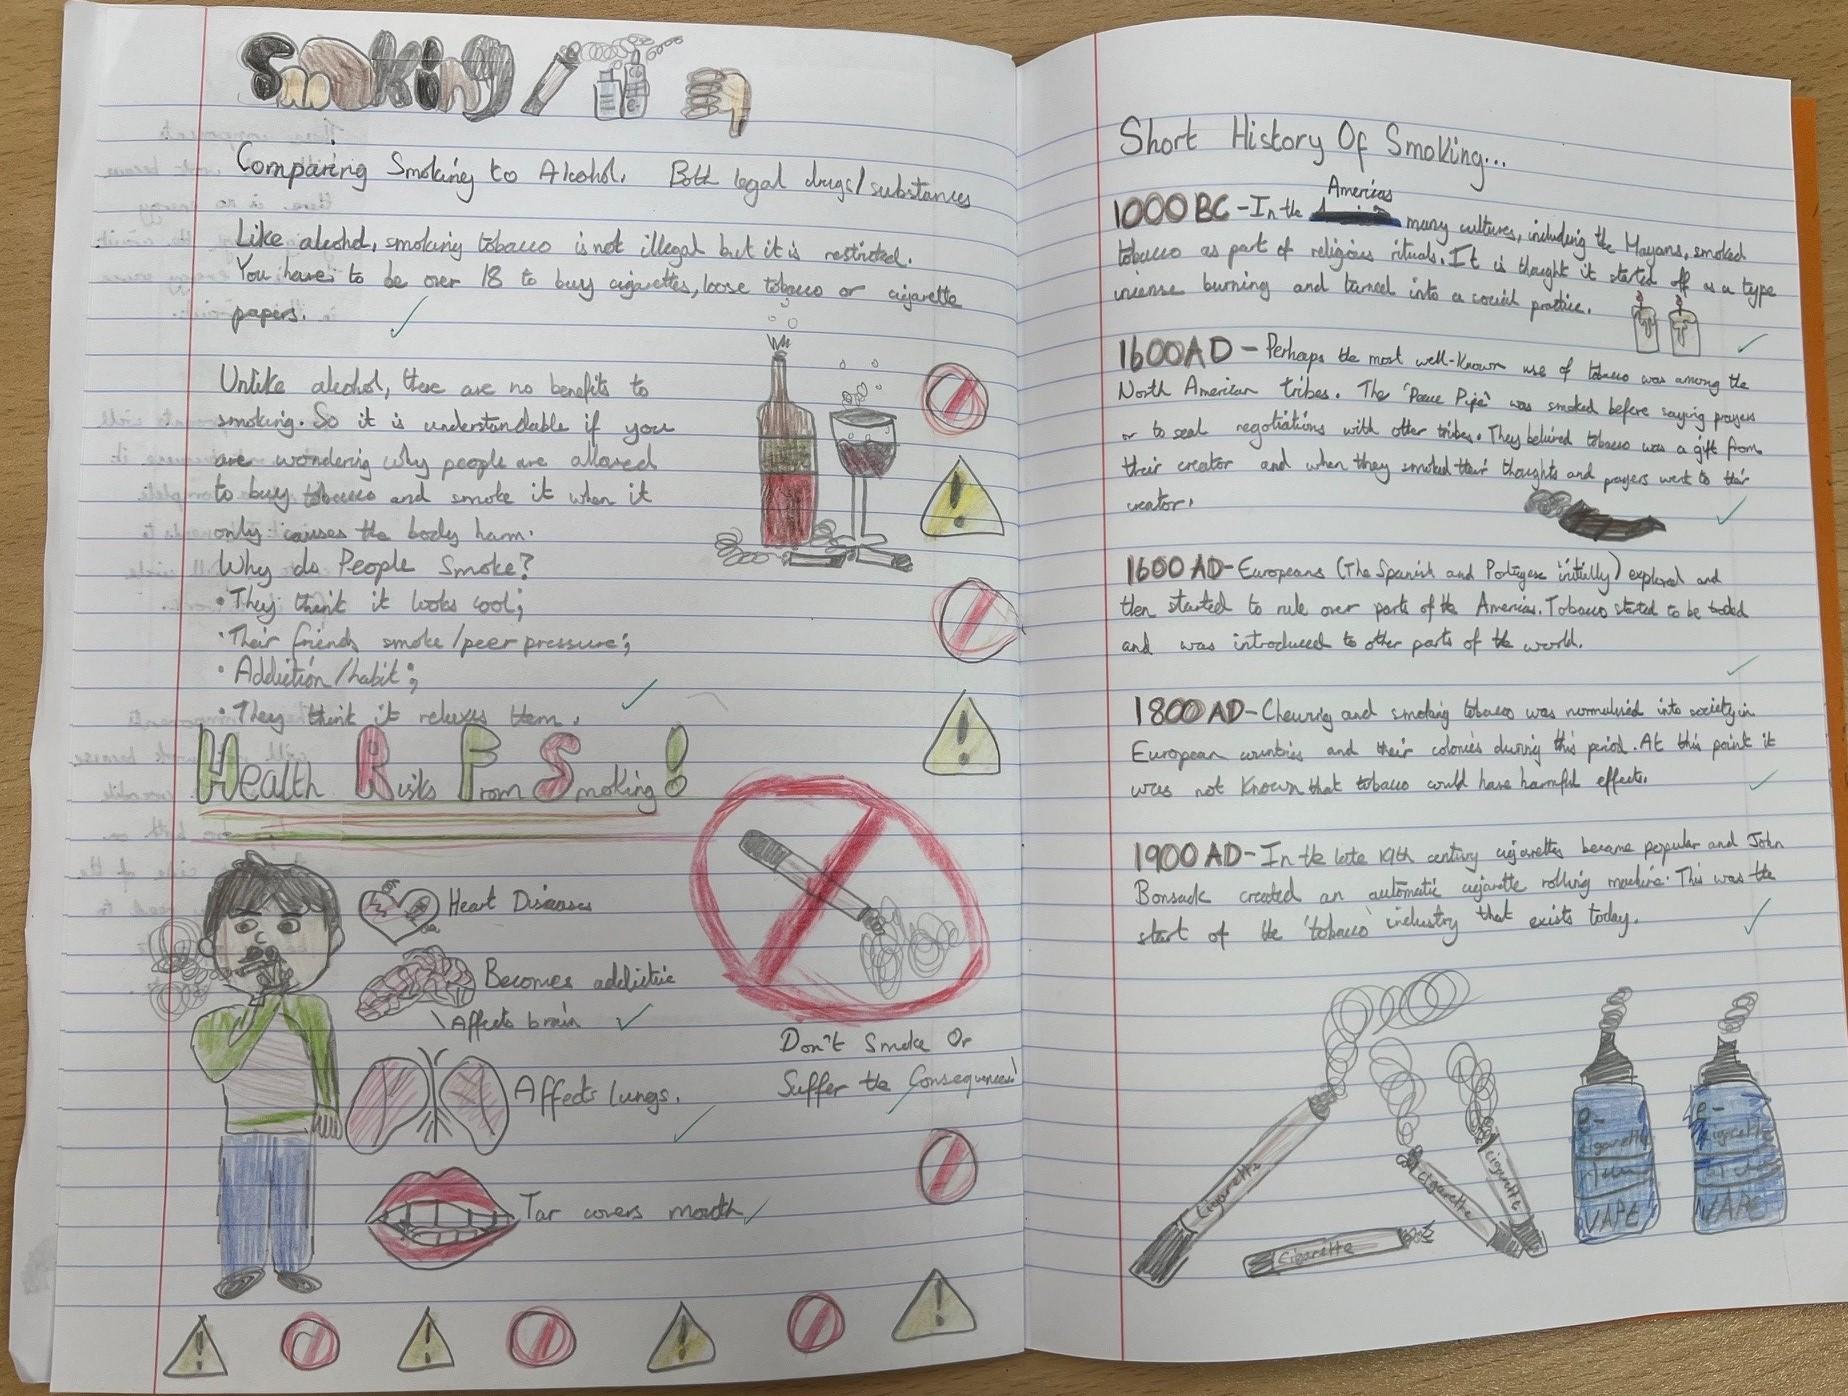 Smoking
Comparing Smoking to Alcohol. Both legal drugs/substances
Like alcohol, smoking tobacco is not illegal but it is restricted.
You have to be over 18 to buy cigarettes, loose tobacco or cigarette
papers.
Unlike alcohol, there are no benefits to
smoking. So it is understandable if you
are wondering why people are allowed
to buy tobacco and smoke it when it
only causes the body harm.
Why do People Smoke?
• They think it looks cool;
• Their friends smoke/peer pressure;
• Addiction/habit;
• They think it relaxes them.
Health Risks From Smoking!
Heart Diseases
Becomes addictive
Affects brain
Affects lungs.
Tar covers mouth
Don't Smoke Or
Suffer the Consequences!
Short History Of Smoking...
1000 BC - In the Americas many cultures, including the Mayans, smoked
tobacco as part of religious rituals. It is thought it started off as a type
incense burning and turned into a social practice.
1600 AD - Perhaps the most well-known use of tobacco was among the
North American tribes. The 'Peace Pipe' was smoked before saying prayers
or to seal negotiations with other tribes. They believed tobacco was a gift from
their creator and when they smoked their thoughts and prayers went to their
creator.
1600 AD - Europeans (The Spanish and Portugese initially) explored and
then started to rule over parts of the Americas. Tobacco started to be traded
and was introduced to other parts of the world.
1800 AD - Chewing and smoking tobacco was normalised into society in
European countries and their colonies during this period. At this point it
was not known that tobacco could have harmful effects.
1900 AD - In the late 19th century cigarettes became popular and John
Bonsack created an automatic cigarette rolling machine. This was the
start of the 'tobacco' industry that exists today.
Cigarette
Cigarette
cigarette
cigarette
e-
cigarette
VAPE
e-
cigarette
VAPE